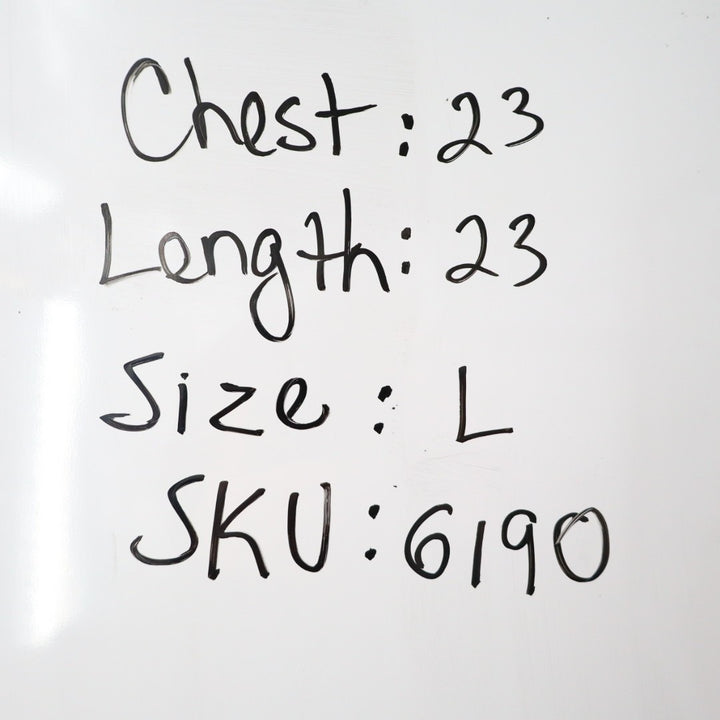 Chest: 23
Length: 23
Size: L
SKU: 6190